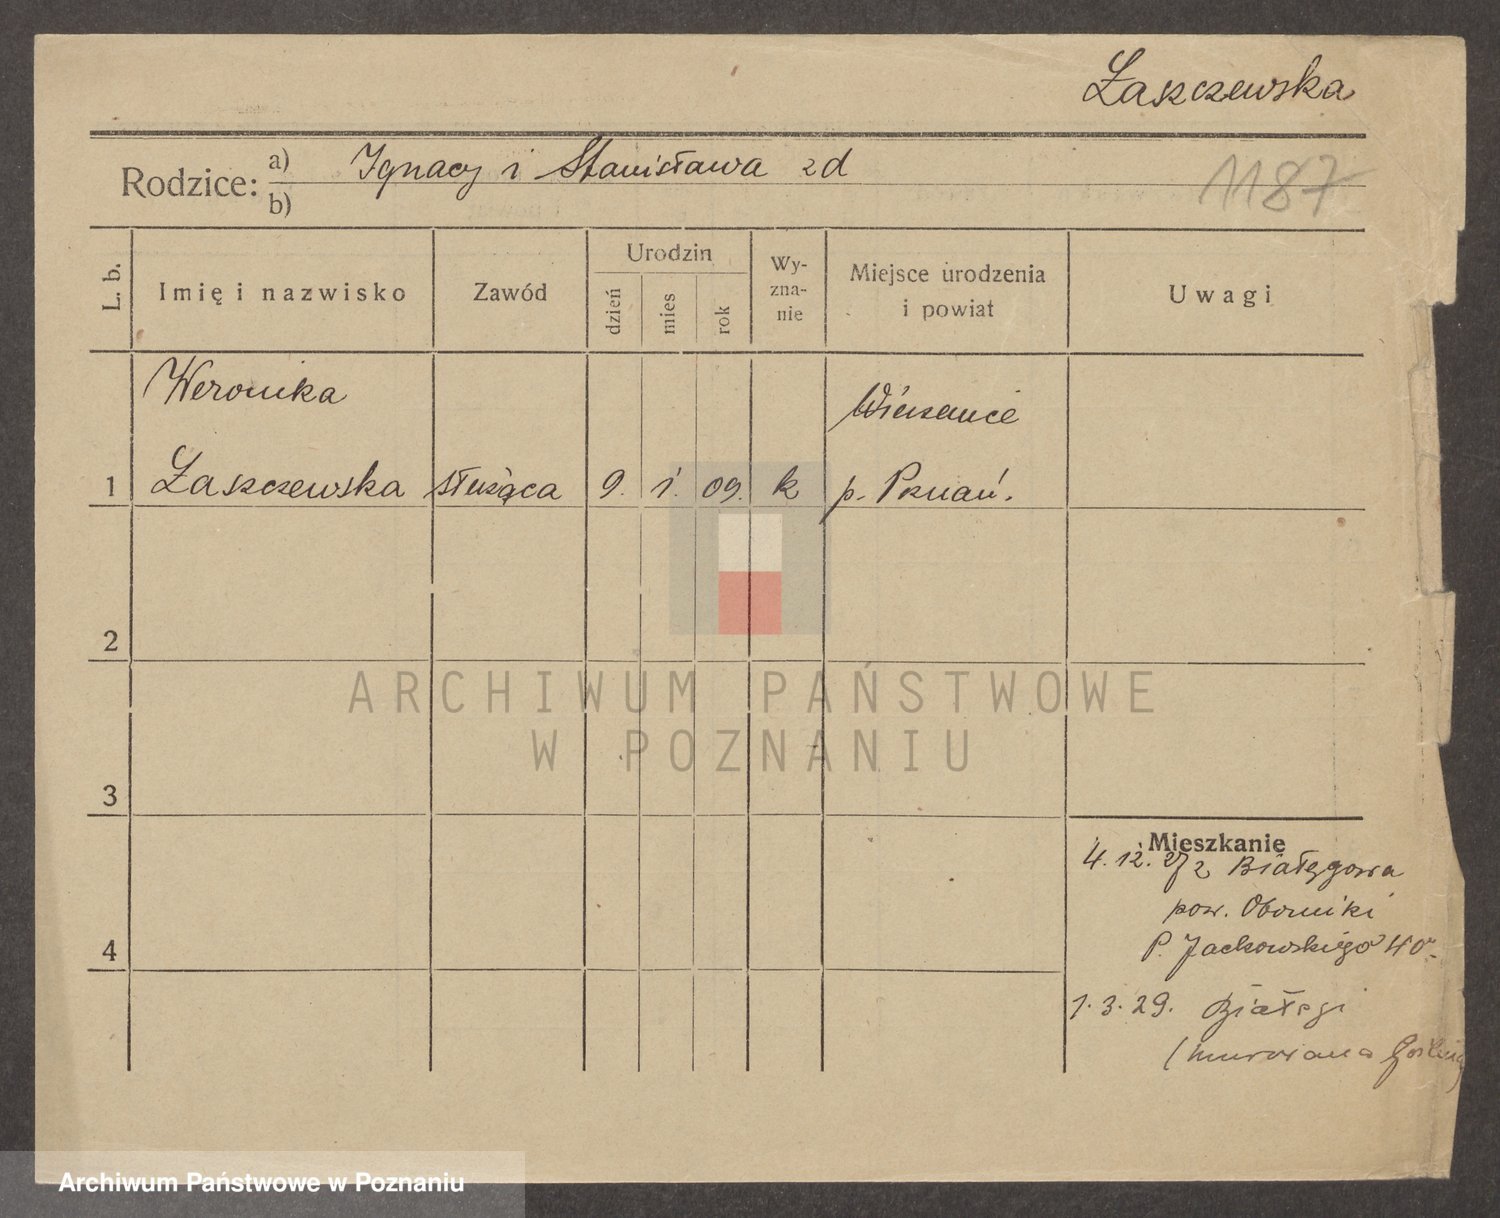 Łaszczewska
Rodzice: a) Ignacy i Stanisława zd
b)
1187
L. b.
Imię i nazwisko
Zawód
Urodzin
dzień
mies
rok
Wy-
zna-
nie
Miejsce urodzenia
i powiat
Uwagi
Weronika
Wierzenice
1 Łaszczewska służąca 9. 1. 09. k p. Poznań.
2
ARCHIWUM PAŃSTWOWE
W POZNANIU
3
Mieszkanie
4. 12. 27 z
pow. Oborniki
4
P. Jackowskiego 40
1. 3. 29. Białęgi
(murowana Goślina)
Archiwum Państwowe w Poznaniu